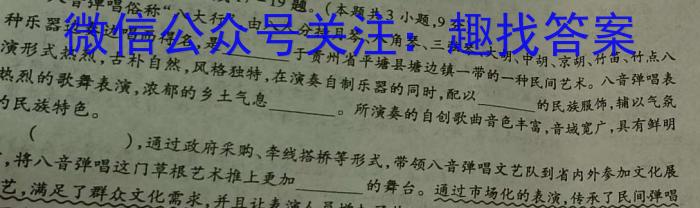 17-19题。(本题共3小题,9
微信公众号关注:趣找答案
八音弹唱俗称“八大行”
种乐器
三弦琴、大胡、中胡、京胡、竹笛、竹点八
于贵州省平塘县塘边镇一带的一种民间艺术。八音弹唱表
演形式热烈,古朴自然,风格独特,在演奏自制乐器的同时,配以______的民族服饰,辅以气氛
热烈的歌舞表演,浓郁的乡土气息______。所演奏的自创歌曲音色丰富,音域宽广,具有鲜明
的民族特色。
( ),通过政府采购、牵线搭桥等形式,带领八音弹唱文艺队到省内外参加文化展
,将八音弹唱这门草根艺术推上更加______的舞台。通过市场化的表演,传承了民间弹唱
艺,满足了群众文化需求,并且让表演人员增加了